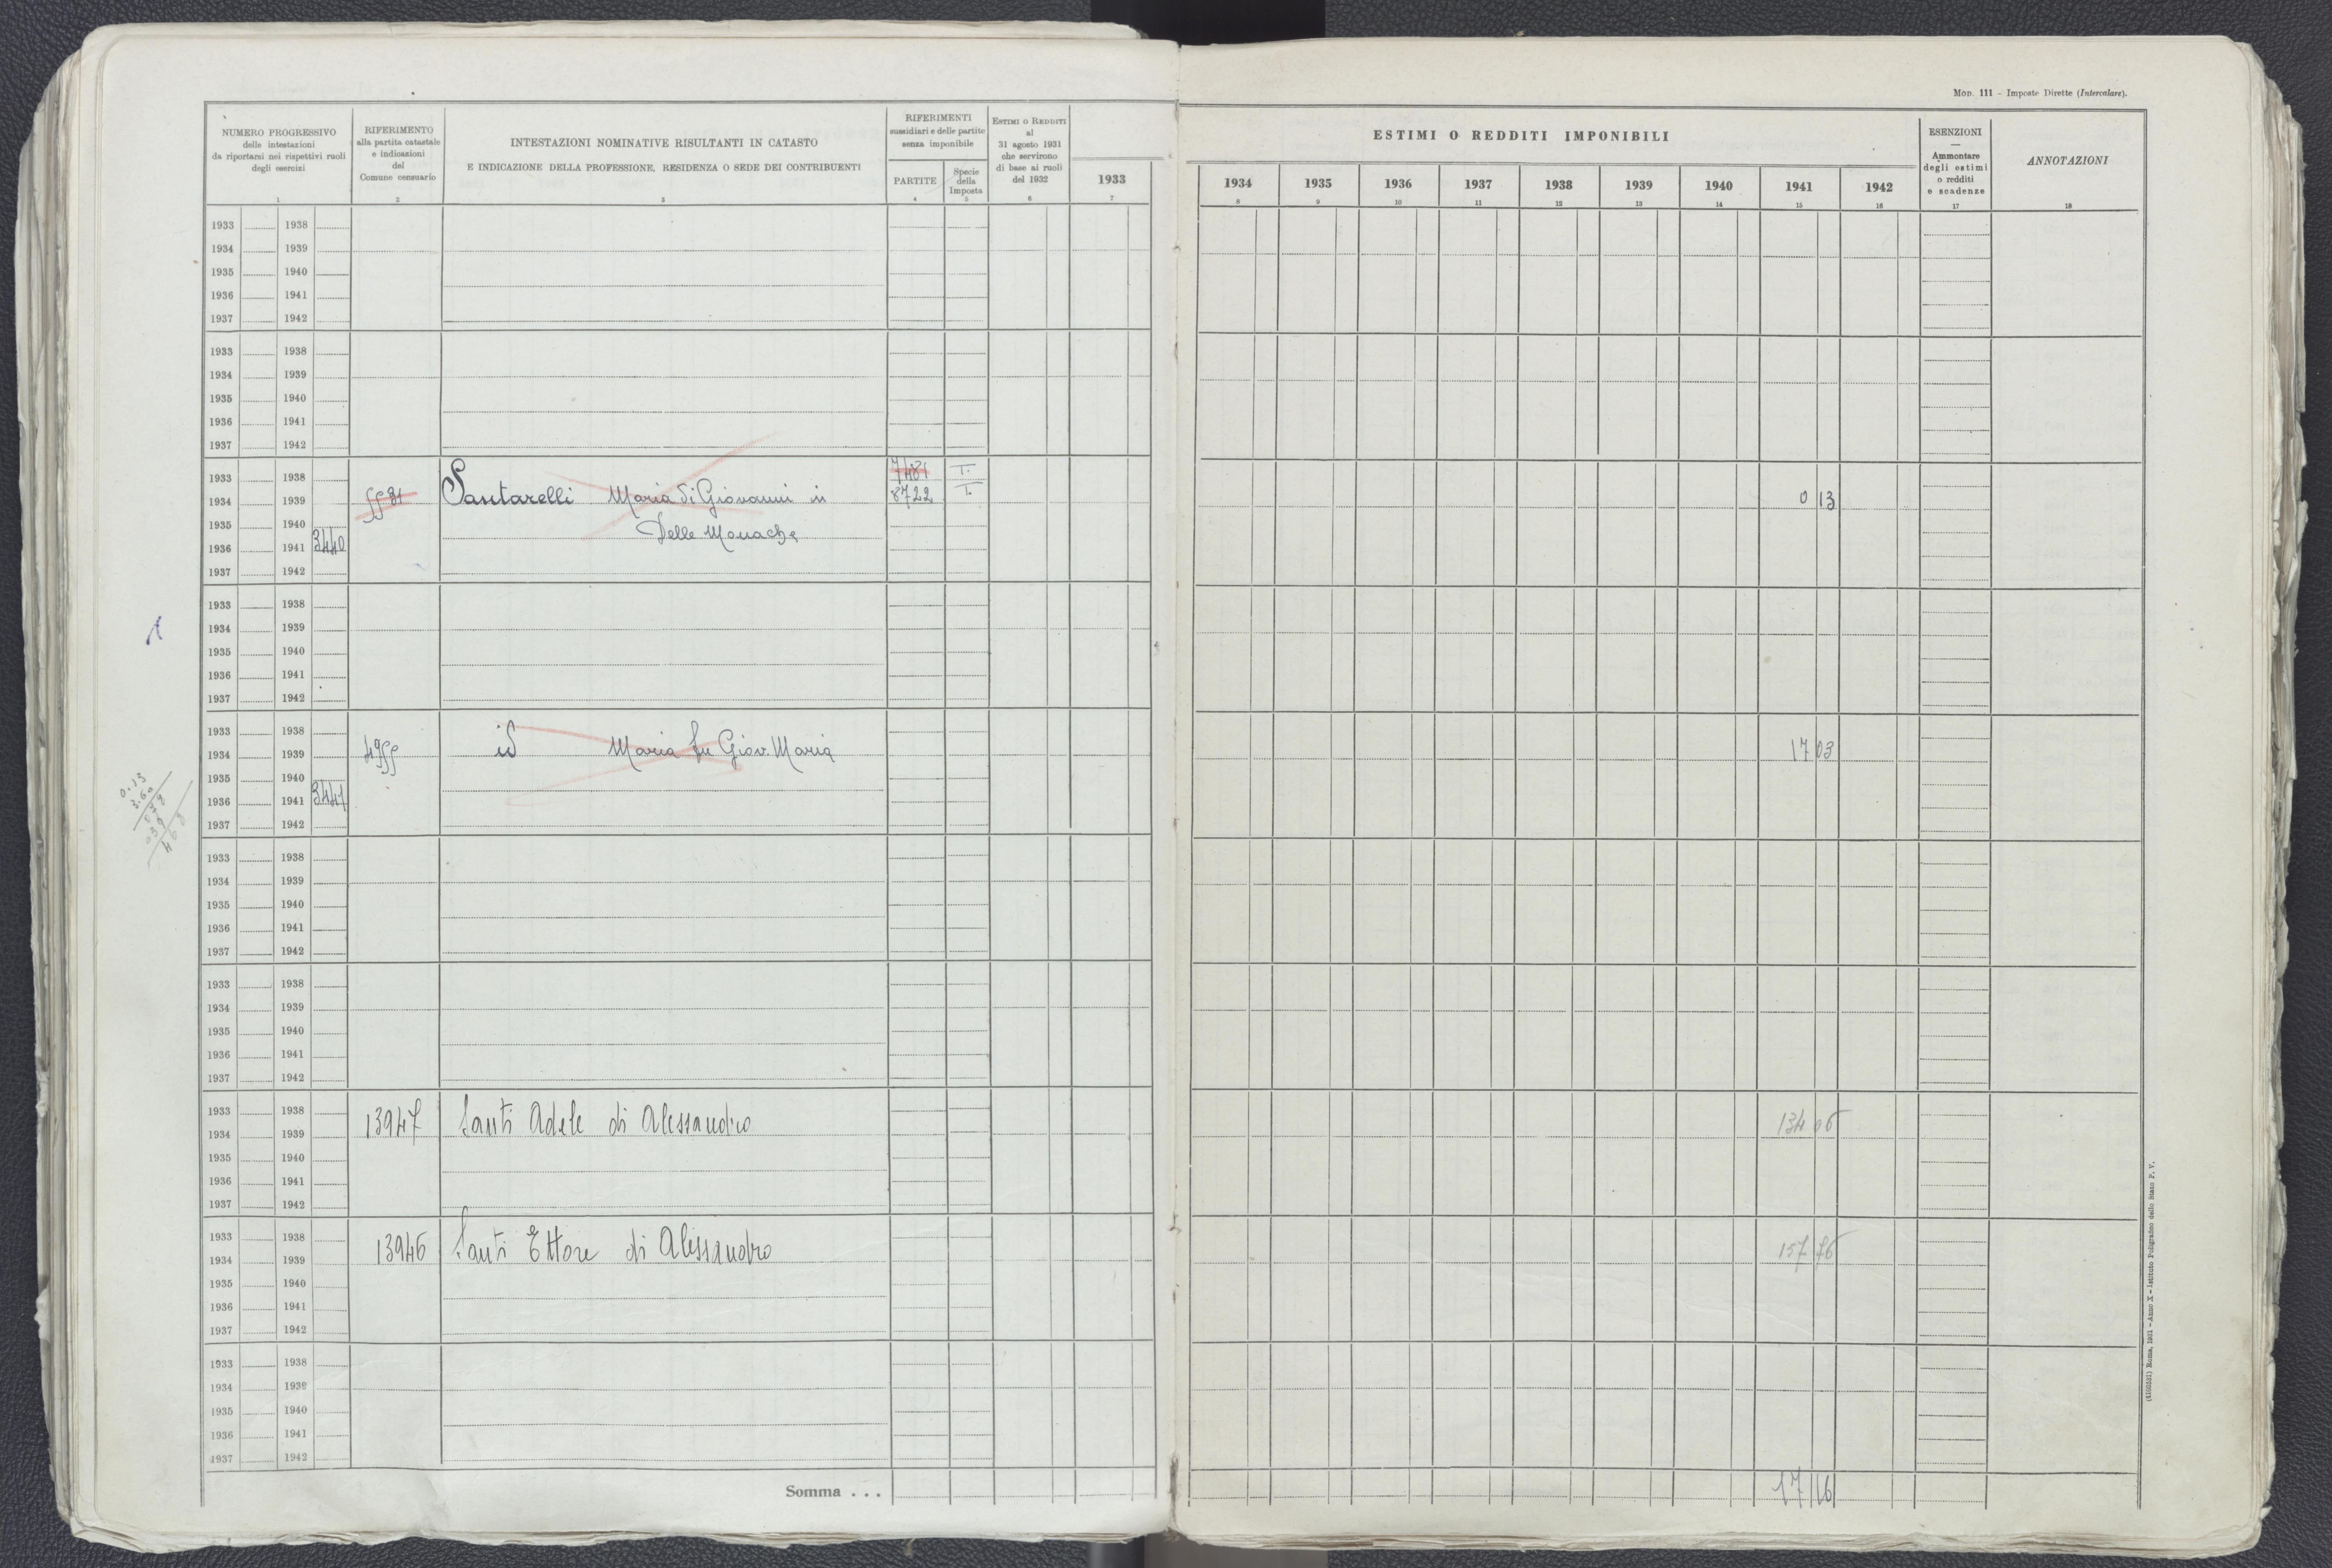 Mod. 111 - Imposte Dirette (Intercalare).
NUMERO PROGRESSIVO
delle intestazioni
da riportarsi nei rispettivi ruoli
degli esercizi
1
RIFERIMENTO
alla partita catastale
e indicazioni
del
Comune censuario
2
INTESTAZIONI NOMINATIVE RISULTANTI IN CATASTO
E INDICAZIONE DELLA PROFESSIONE, RESIDENZA O SEDE DEI CONTRIBUENTI
3
RIFERIMENTI
sussidiari e delle partite
senza imponibile
PARTITE
4
Specie
della
Imposta
5
Estimi o Redditi
al
31 agosto 1931
che servirono
di base ai ruoli
del 1932
6
ESTIMI O REDDITI IMPONIBILI
1933
7
1934
8
1935
9
1936
10
1937
11
1938
12
1939
13
1940
14
1941
15
1942
16
ESENZIONI
—
Ammontare
degli estimi
o redditi
e scadenze
17
ANNOTAZIONI
18
1933 1938
1934 1939
1935 1940
1936 1941
1937 1942
1933 1938
1934 1939
1935 1940
1936 1941
1937 1942
1933 1938 7481 T.
1934 1939 Santarelli Maria di Giovanni in 8722 T. 0 13
1935 1940 Delle Monache
1936 1941 3440
1937 1942
1933 1938
1934 1939
1935 1940
1936 1941
1937 1942
1933 1938
1934 1939 id Maria fu Giov. Maria 17 03
1935 1940
1936 1941 3441
1937 1942
0.13
3.60
1933 1938
1934 1939
1935 1940
1936 1941
1937 1942
1933 1938
1934 1939
1935 1940
1936 1941
1937 1942
1933 1938
1934 1939 13947 Santi Adele di Alessandro 134 06
1935 1940
1936 1941
1937 1942
1933 1938
1934 1939 13946 Santi Ettore di Alessandro 157 76
1935 1940
1936 1941
1937 1942
1933 1938
1934 1939
1935 1940
1936 1941
1937 1942
Somma . . . 17 16
(4160531) Roma, 1931 - Anno X - Istituto Poligrafico dello Stato P. V.